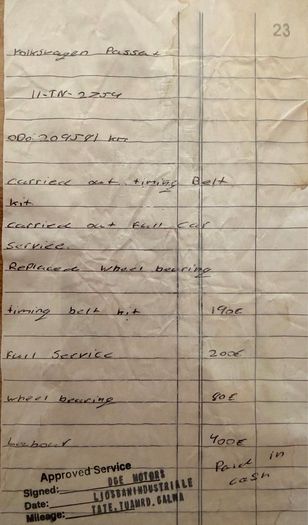 23
Volkswagen Passat
11-TN-2754
ODO 209581 km
carried out timing Belt
kit
carried out Full Car
service.
Replaced wheel bearing
timing belt kit 190€
Full Service 200€
wheel bearing 80€
400€
Paid in
cash
Approved Service
Signed: DGE MOTORS
Date: LIOSBANINDUSTRIALE
Mileage: TATE.TUAMRD.GALWA